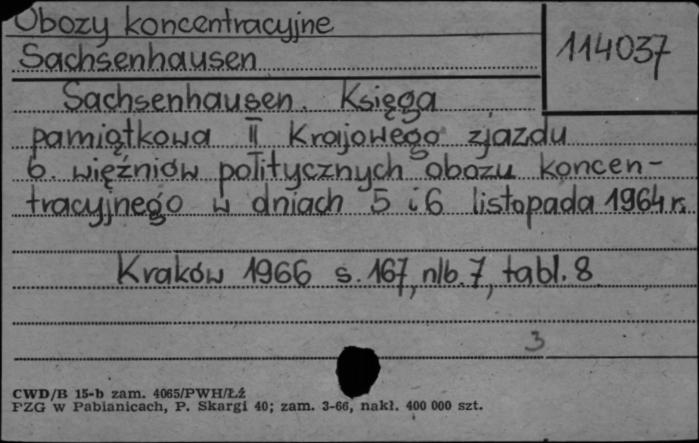 Obozy koncentracyjne
Sachsenhausen
114037
Sachsenhausen. Księga
pamiątkowa II Krajowego zjazdu
b. więźniów politycznych obozu koncen-
tracyjnego w dniach 5 i 6 listopada 1964 r.
Kraków 1966 s. 167, nlb. 7, tabl. 8
3
CWD/B 15-b zam. 4065/PWH/Łź
PZG w Pabianicach, P. Skargi 40; zam. 3-66, nakł. 400 000 szt.